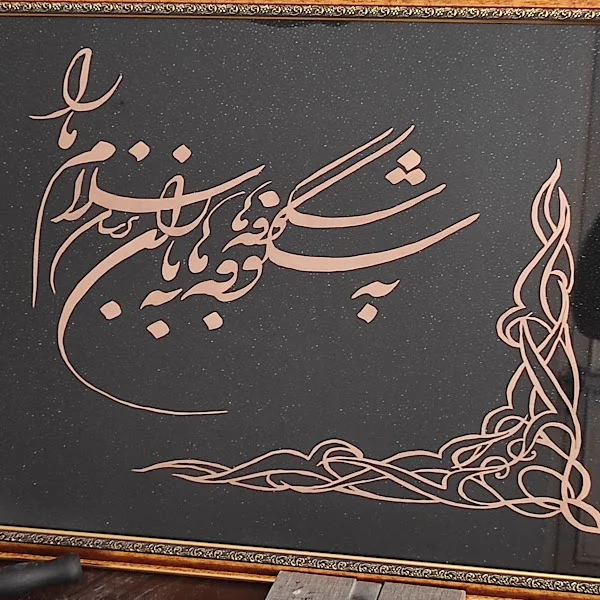 به شکوفه‌ها به باران برسان سلام ما را